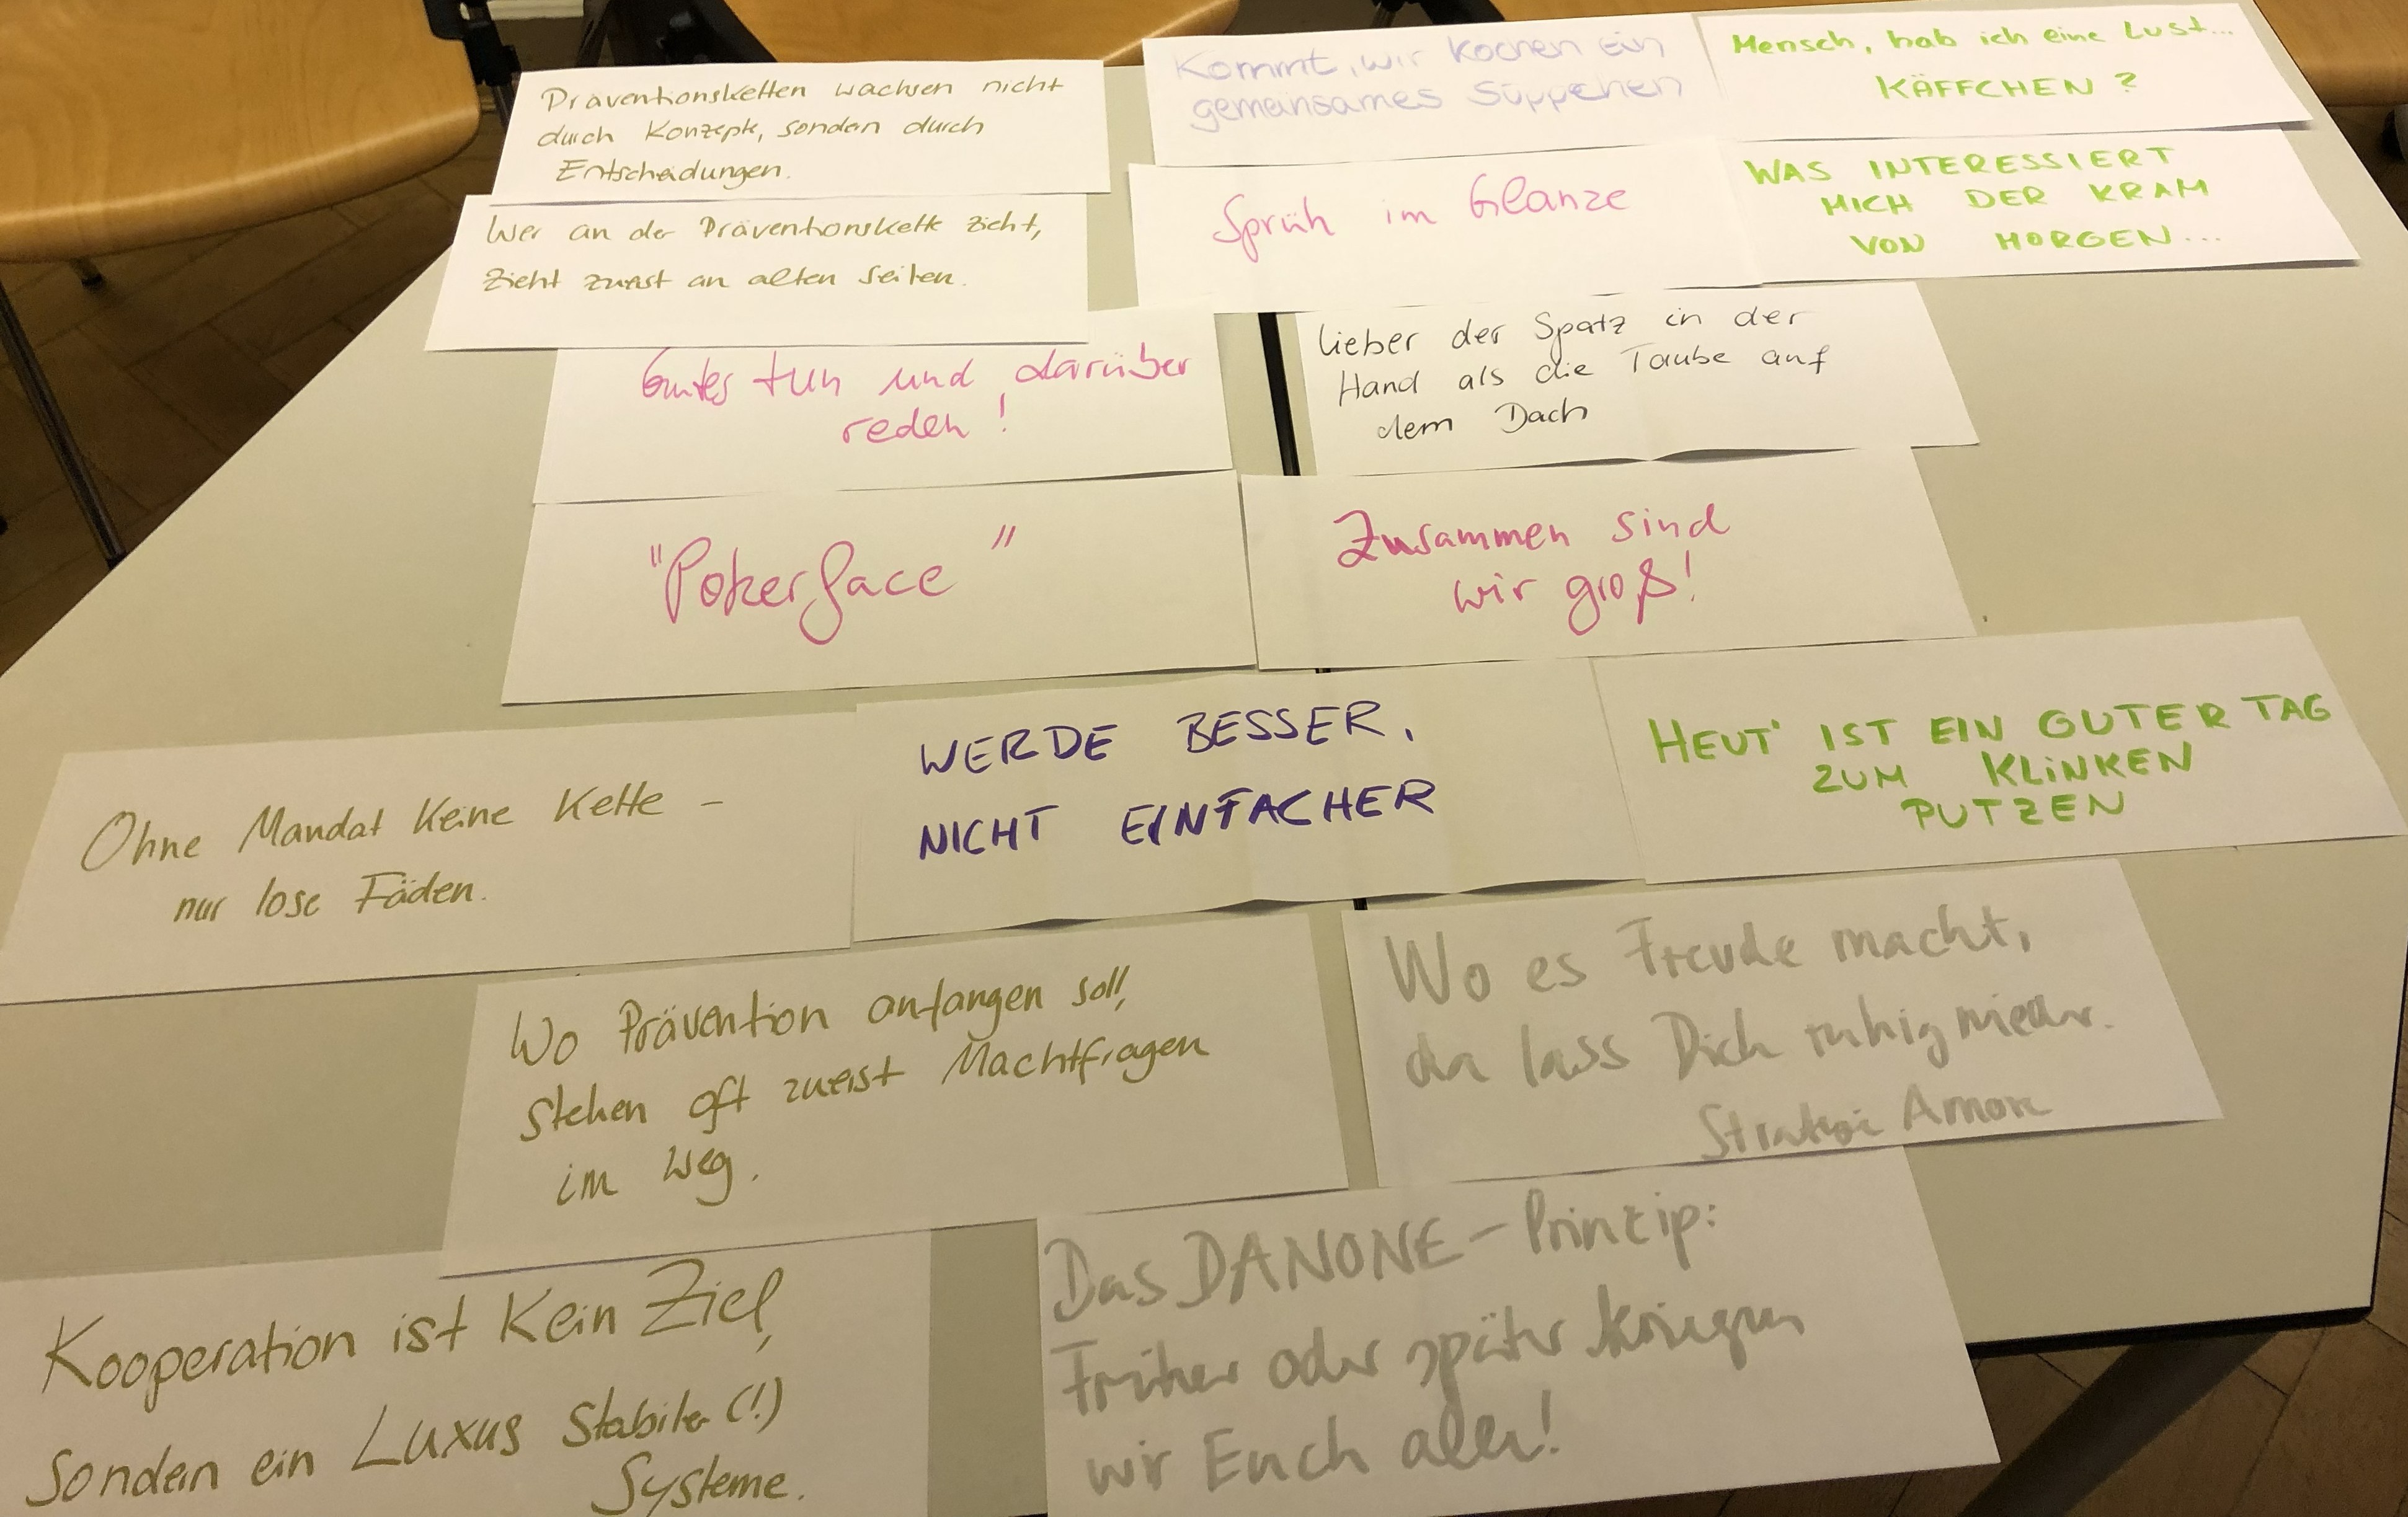 Präventionsketten wachsen nicht
durch Konzepte, sondern durch
Entscheidungen.
Kommt, wir kochen ein
gemeinsames Süppchen
Mensch, hab ich eine Lust...
KÄFFCHEN?
Wer an der Präventionskette zieht,
zieht zuerst an alten Seilen.
Sprüh im Glanze
WAS INTERESSIERT
MICH DER KRAM
VON MORGEN...
Gutes tun und darüber
reden!
lieber der Spatz in der
Hand als die Taube auf
dem Dach
"Pokerface"
Zusammen sind
wir groß!
Ohne Mandat keine Kette –
nur lose Fäden.
WERDE BESSER,
NICHT EINFACHER
HEUT' IST EIN GUTER TAG
ZUM KLINKEN
PUTZEN
Wo Prävention anfangen soll,
stehen oft zuerst Machtfragen
im Weg.
Wo es Freude macht,
da lass Dich ruhig
Amore
Kooperation ist kein Ziel,
sondern ein Luxus stabiler (!)
Systeme.
Das DANONE-Prinzip:
Früher oder später kriegen
wir Euch alle!